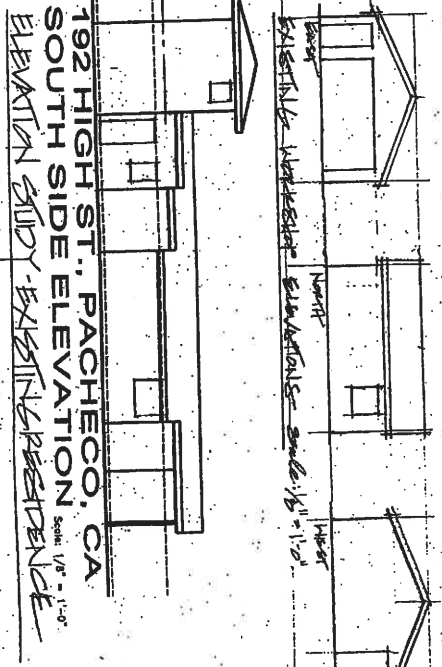 East
North
West
EXISTING WORKSHOP ELEVATIONS scale: 1/8" = 1'-0"
192 HIGH ST., PACHECO, CA
SOUTH SIDE ELEVATION Scale: 1/8" = 1'-0"
ELEVATION STUDY - EXISTING RESIDENCE